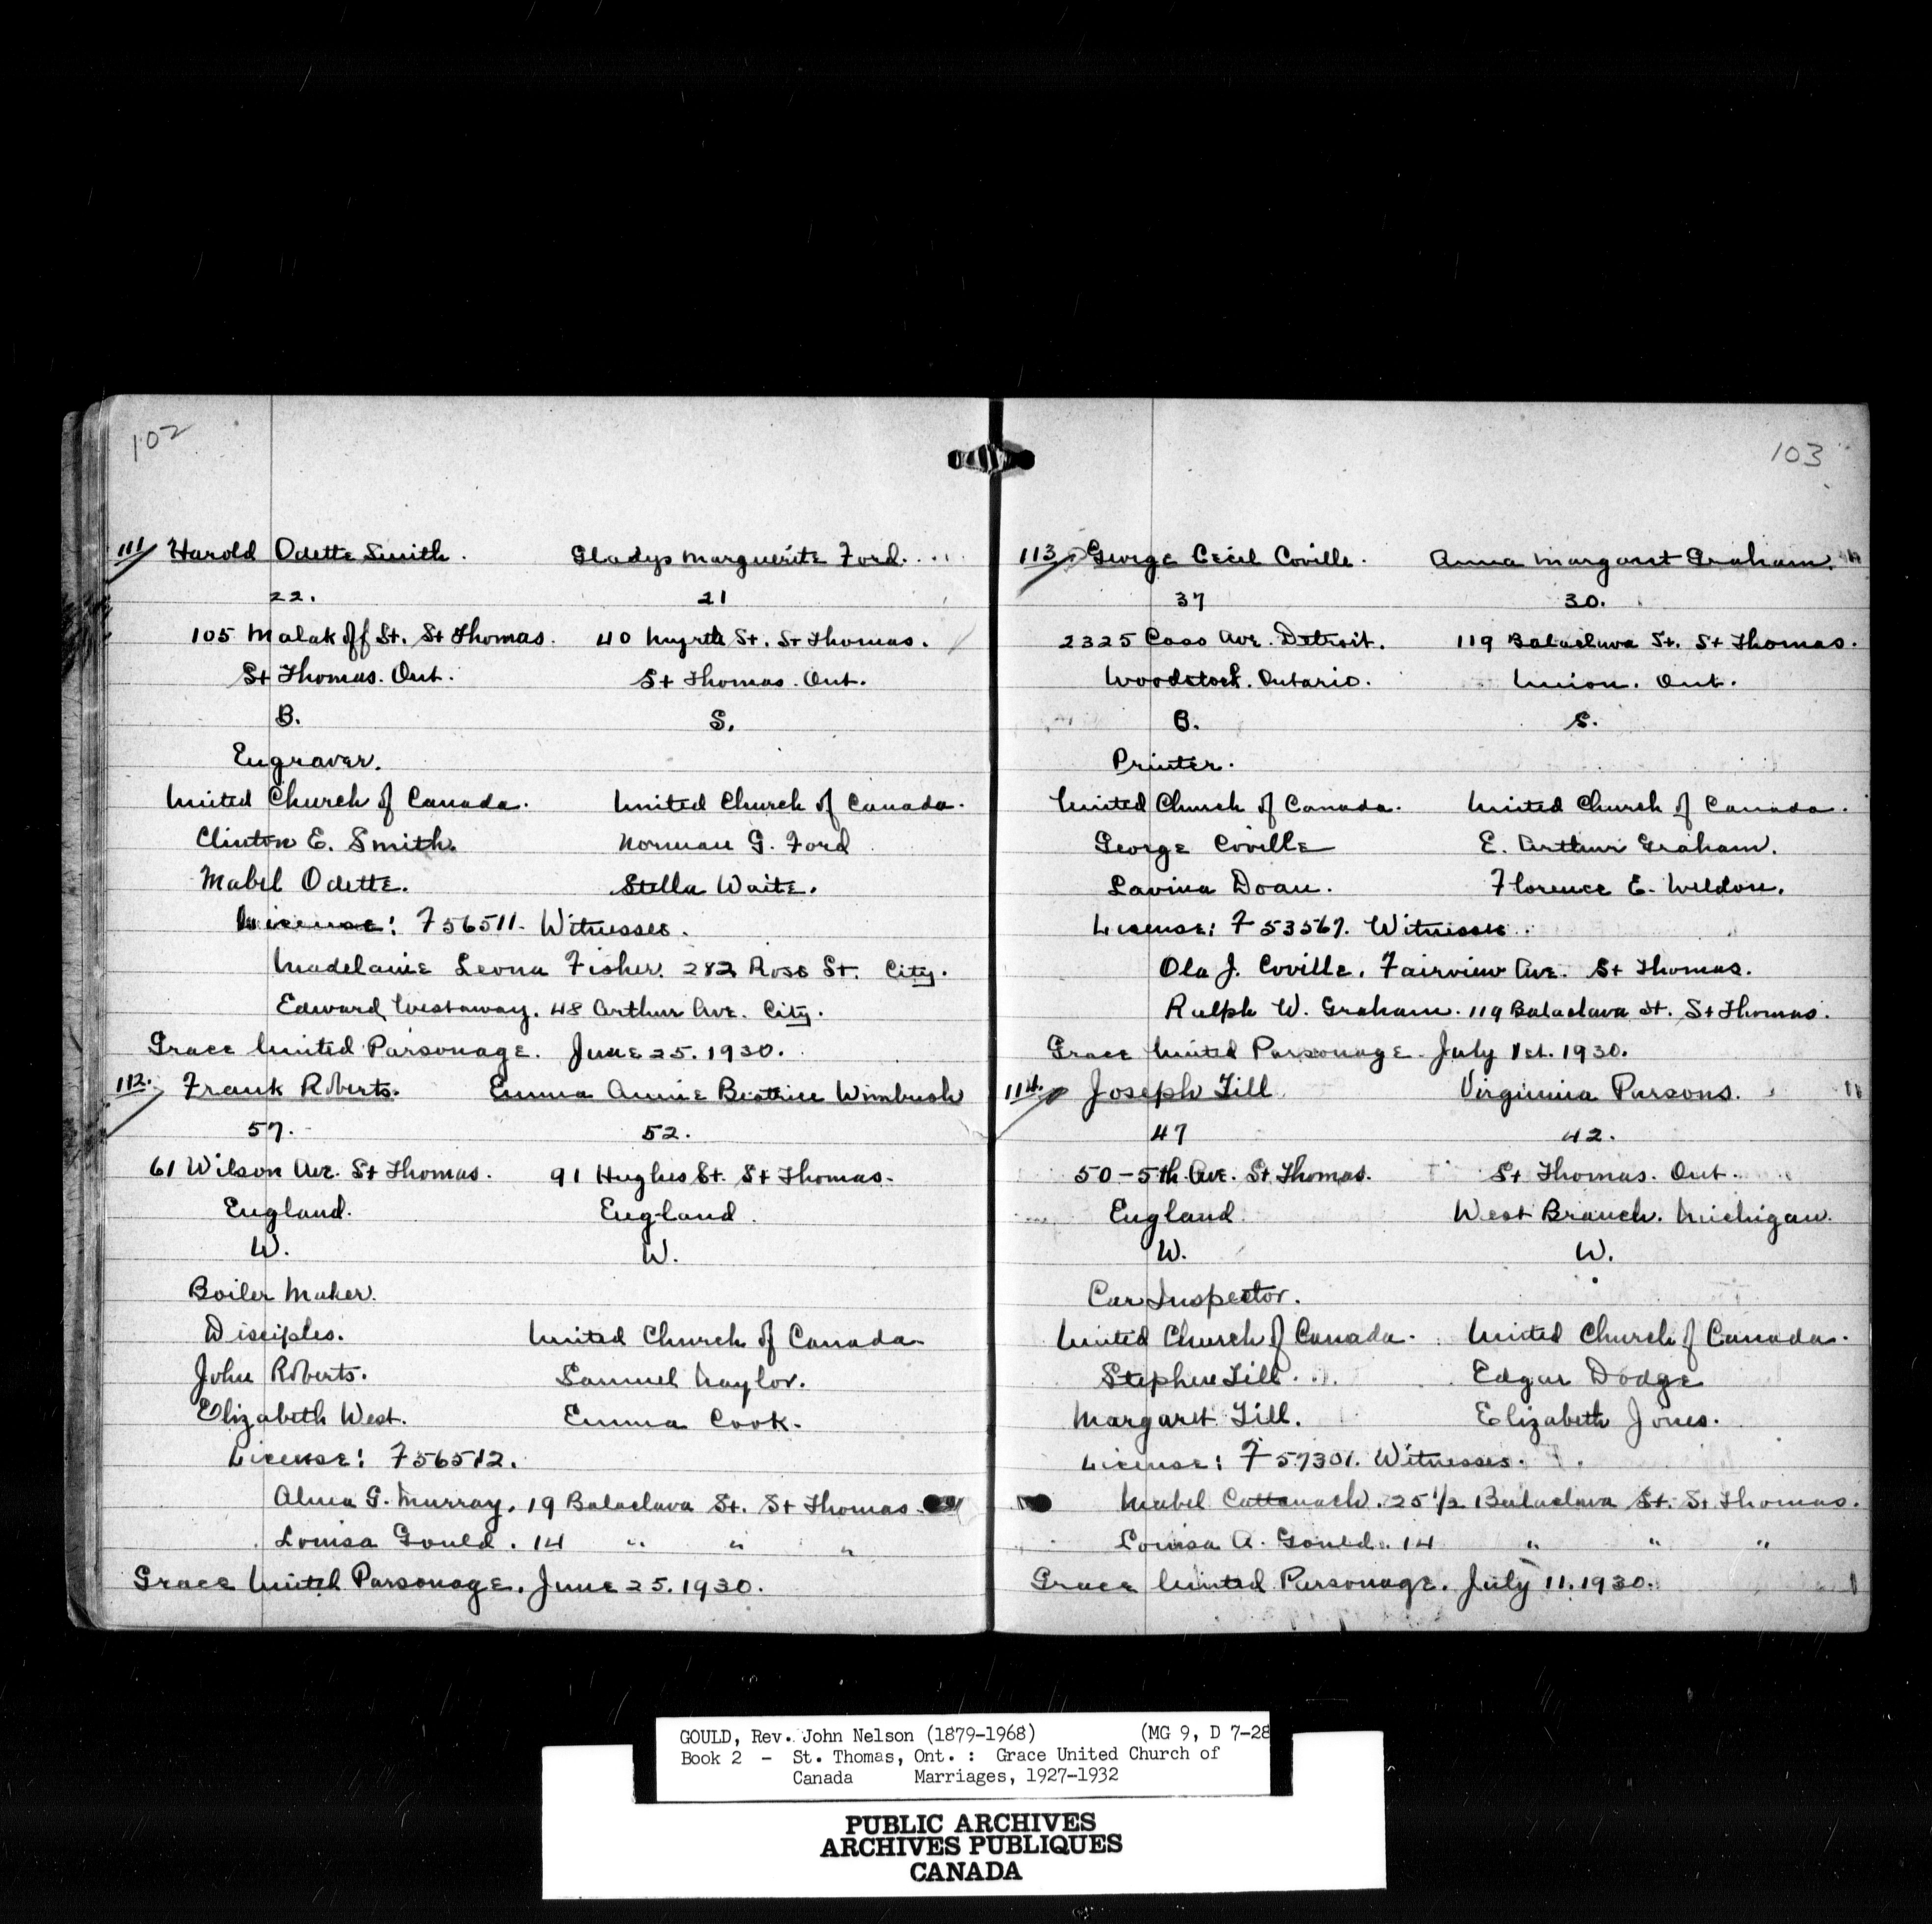 102
111 Harold Odette Smith. Gladys Marguerite Ford.
22. 21
105 Malakoff St. St Thomas. 40 Myrtle St. St Thomas.
St Thomas. Ont. St Thomas. Ont.
B. S.
Engraver.
United Church of Canada. United Church of Canada.
Clinton E. Smith. Norman G. Ford
Mabel Odette. Stella Waite.
License: F56511. Witnesses.
Madelaine Leona Fisher. 282 Ross St. City.
Edward Westaway. 48 Arthur Ave. City.
Grace United Parsonage. June 25. 1930.
112. Frank Roberts. Emma Annie Beatrice Wimbush
57. 52.
61 Wilson Ave. St Thomas. 91 Hughes St. St Thomas.
England. England.
W. W.
Boiler Maker.
Disciples. United Church of Canada.
John Roberts. Samuel Naylor.
Elizabeth West. Emma Cook.
License: F56512.
Alma G. Murray. 19 Balaclava St. St Thomas.
Louisa Gould. 14 " " "
Grace United Parsonage. June 25. 1930.
103
113 George Cecil Coville. Anna Margaret Graham.
37 30.
2325 Cass Ave. Detroit. 119 Balaclava St. St Thomas.
Woodstock. Ontario. Union. Ont.
B. S.
Printer.
United Church of Canada. United Church of Canada.
George Coville E. Arthur Graham.
Lavina Doan. Florence E. Weldon.
License: F 53567. Witnesses.
Ola J. Coville. Fairview Ave. St Thomas.
Ralph W. Graham. 119 Balaclava St. St Thomas.
Grace United Parsonage. July 1st. 1930.
114. Joseph Till Virginina Parsons.
47 42.
50-5th. Ave. St Thomas. St Thomas. Ont.
England West Branch. Michigan.
W. W.
Car Inspector.
United Church of Canada. United Church of Canada.
Stephen Till. Edgar Dodge
Margaret Till. Elizabeth Jones.
License: F 57301. Witnesses.
Mabel Cattanach. 25 1/2 Balaclava St. St Thomas.
Louisa A. Gould. 14 " " "
Grace United Parsonage. July 11. 1930.
GOULD, Rev. John Nelson (1879-1968) (MG 9, D 7-28
Book 2 - St. Thomas, Ont. : Grace United Church of
Canada Marriages, 1927-1932
PUBLIC ARCHIVES
ARCHIVES PUBLIQUES
CANADA